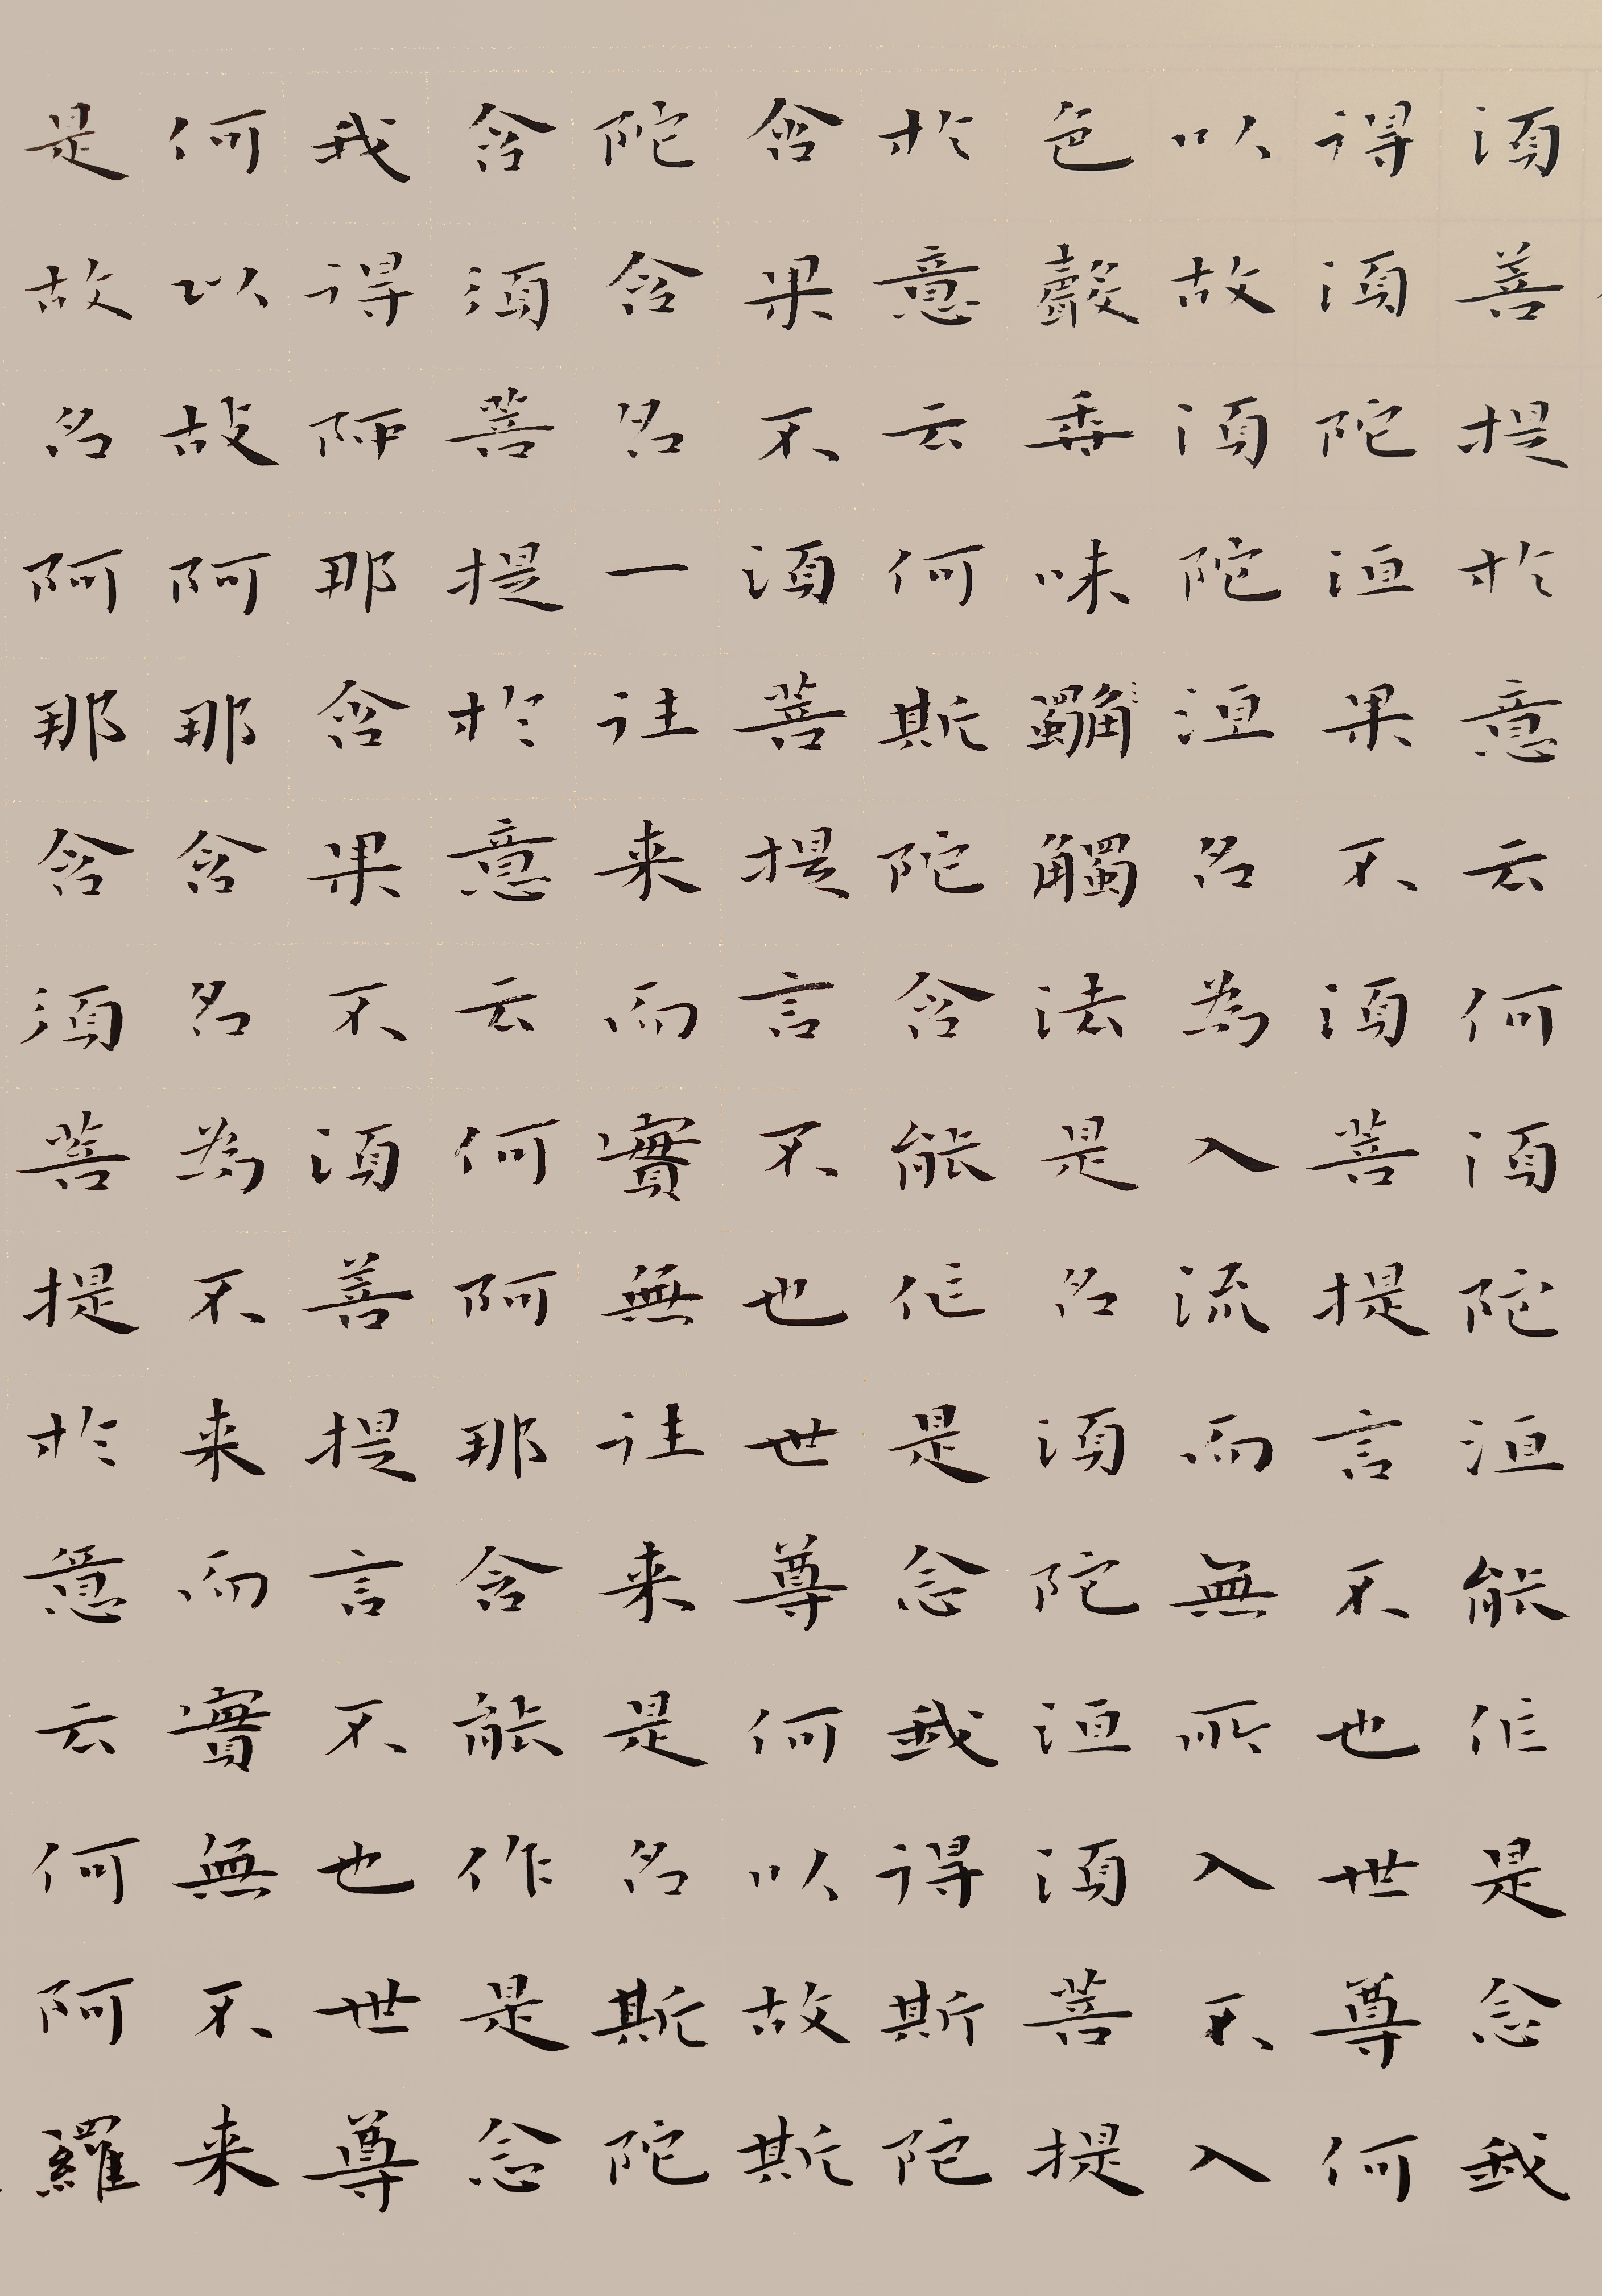 湏菩提於意云何湏陀洹能作是念我
得湏陀洹果不湏菩提言不也世尊何
以故湏陀洹名為入流而無所入不入
色聲香味觸觸法是名湏陀洹湏菩提
於意云何斯陀含能作是念我得斯陀
含果不湏菩提言不也世尊何以故斯
陀含名一往来而實無往来是名斯陀
含湏菩提於意云何阿那含能作是念
我得阿那含果不湏菩提言不也世尊
何以故阿那含名為不来而實無不来
是故名阿那含湏菩提於意云何阿羅